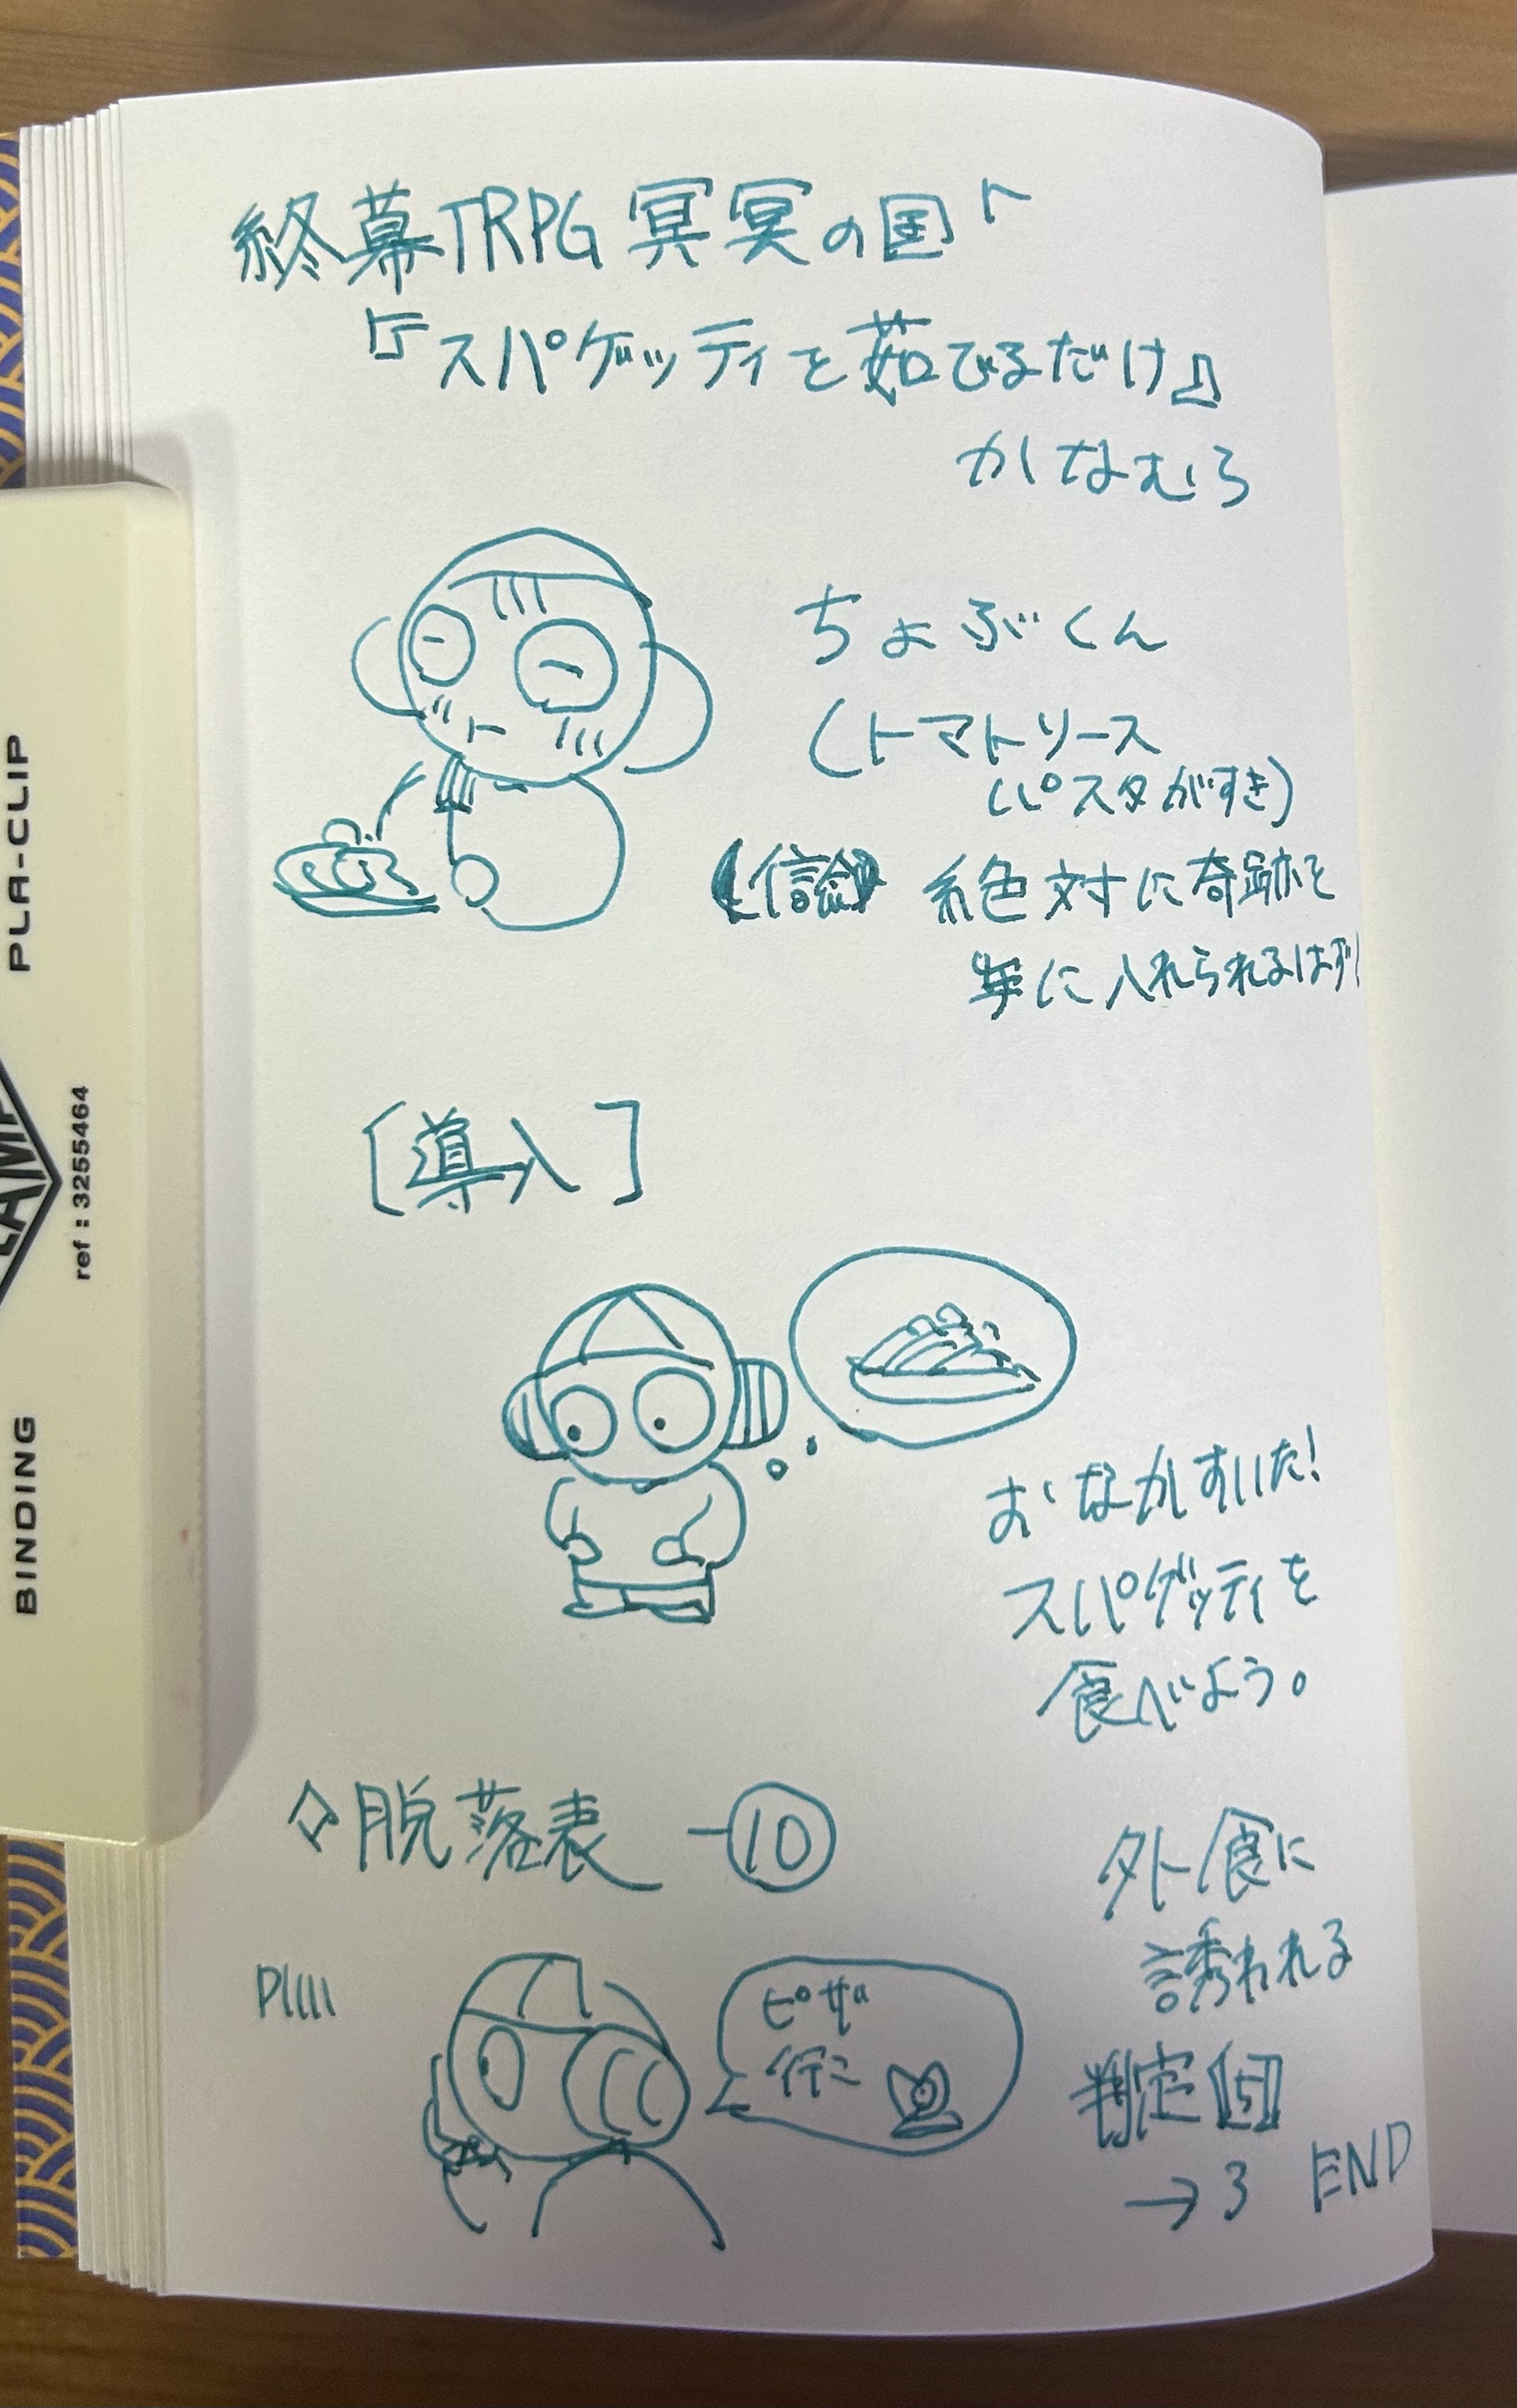 終幕TRPG 冥冥の国
『スパゲッティを茹でるだけ』
かなむろ
ちょぶくん
(トマトソース
パスタがすき)
【信念】 絶対に奇跡を
手に入れられるはず!
[導入]
おなかすいた!
スパゲッティを
食べよう。
◇脱落表 -⑩
外食に
誘われる
判定【5】
→3 END
ピザ
行こ
PLA-CLIP
ref : 3255464
BINDING